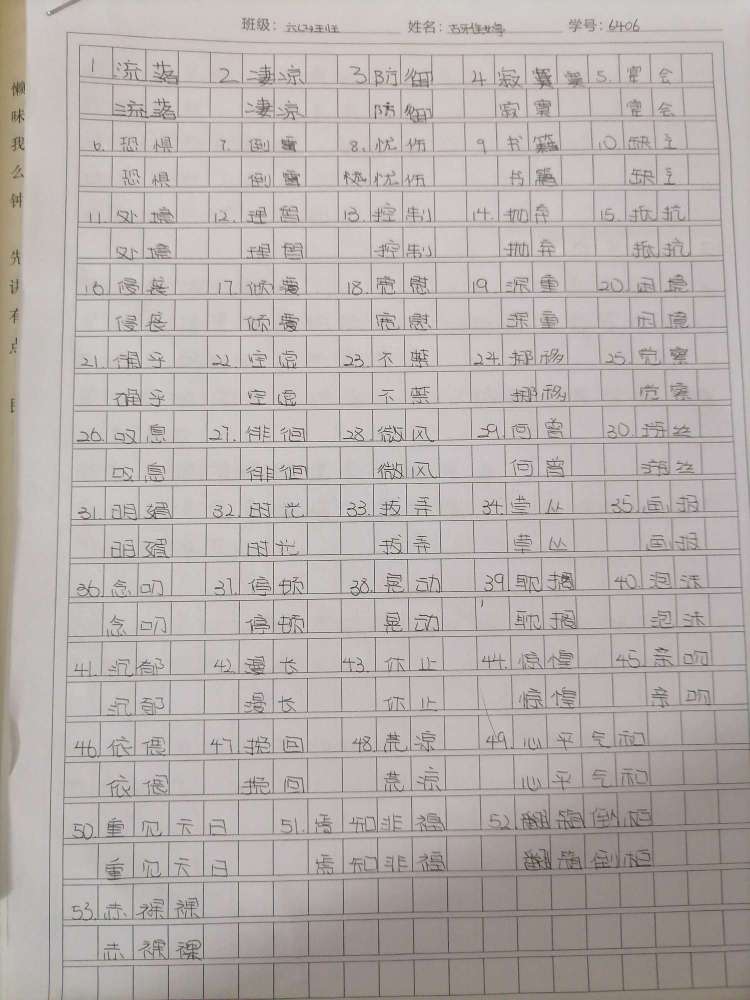 班级： 姓名： 学号：6406
1 流落 2. 凄凉 3 防御 4. 寂寞 5. 宴会
流落 凄凉 防御 寂寞 宴会
6. 恐惧 7. 倒霉 8. 忧伤 9 书籍 10. 缺乏
恐惧 倒霉 忧伤 书籍 缺乏
11. 处境 12. 理智 13. 控制 14. 抛弃 15. 抵抗
处境 理智 控制 抛弃 抵抗
16. 侵袭 17. 倾覆 18. 宽慰 19. 深重 20. 困境
侵袭 倾覆 宽慰 深重 困境
21. 确乎 22. 空虚 23. 不禁 24. 挪移 25. 觉察
确乎 空虚 不禁 挪移 觉察
26. 叹息 27. 徘徊 28. 微风 29. 何曾 30. 游丝
叹息 徘徊 微风 何曾 游丝
31. 明媚 32. 时光 33. 拨弄 34. 草丛 35. 画报
明媚 时光 拨弄 草丛 画报
36. 念叨 37. 停顿 38. 晃动 39. 耽搁 40. 泡沫
念叨 停顿 晃动 耽搁 泡沫
41. 沉郁 42. 漫长 43. 休止 44. 惊惶 45. 亲吻
沉郁 漫长 休止 惊惶 亲吻
46. 依偎 47. 挽回 48. 荒凉 49. 心平气和
依偎 挽回 荒凉 心平气和
50. 重见天日 51. 焉知非福 52. 翻箱倒柜
重见天日 焉知非福 翻箱倒柜
53. 赤裸裸
赤裸裸
懒
味
我
么
钟
先
有
点